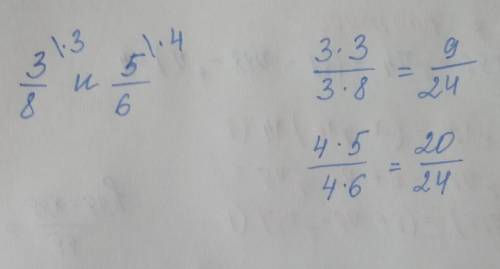 3/8 \·3 и 5/6 \·4
3·3/3·8 = 9/24
4·5/4·6 = 20/24